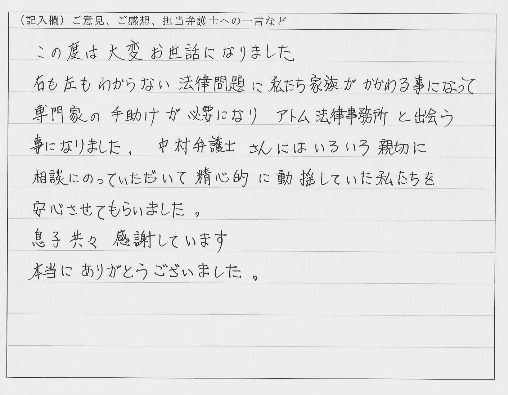 （記入欄）ご意見、ご感想、担当弁護士への一言など
この度は大変お世話になりました
右も左もわからない法律問題に私たち家族がかかわる事になって
専門家の手助けが必要になり アトム法律事務所と出会う
事になりました、中村弁護士さんにはいろいろ親切に
相談にのっていただいて精心的に動揺していた私たちを
安心させてもらいました。
息子共々感謝しています
本当にありがとうございました。